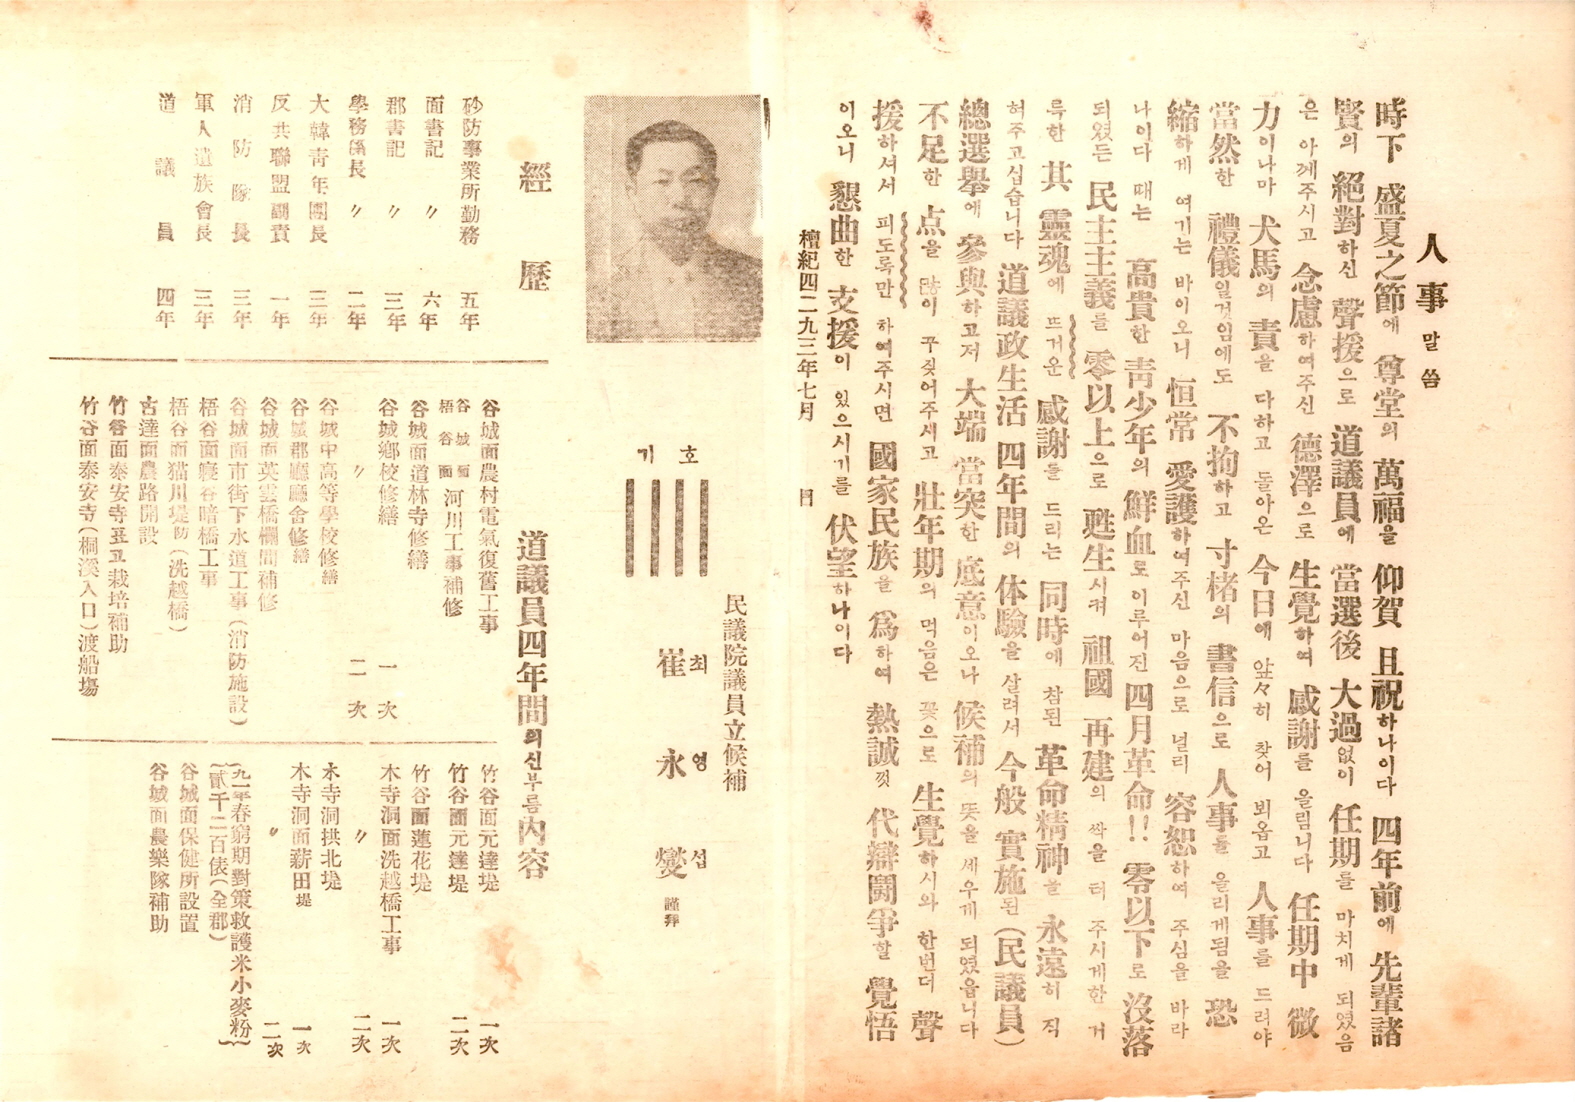 人事 말씀
時下 盛夏之節에 尊堂의 萬福을 仰賀 且祝하나이다 四年前에 先輩諸
賢의 絕對하신 聲援으로 道議員에 當選後 大過없이 任期를 마치게 되였음
은 아께주시고 念慮하여주신 德澤으로 生覺하며 感謝를 올림니다 任期中 微
力이나마 犬馬의 責을 다하고 돌아온 今日에 並々히 찾어 뵈옵고 人事를 드려야
當然한 禮儀일것임에도 不拘하고 寸楮의 書信으로 人事를 올리게됨을 恐
縮하게 여기는 바이오니 恒常 愛護하여주신 마음으로 널리 容恕하여 주심을 바라
나이다 때는 高貴한 靑少年의 鮮血로 이루어진 四月革命!! 零以下로 沒落
되였든 民主主義를 零以上으로 甦生시켜 祖國 再建의 싹을 터 주시게한 거
륵한 其 靈魂에 뜨거운 感謝를 드리는 同時에 참된 革命精神을 永遠히 직
혀주고십습니다 道議政生活 四年間의 体驗을 살려서 今般 實施된 (民議員)
總選擧에 參與하고저 大端 當突한 底意이오나 候補의 뜻을 세우게 되였읍니다
不足한 点을 많이 꾸짖어주시고 壯年期의 먹음은 꽃으로 生覺하시와 한번더 聲
援하셔서 피도록만 하여주시면 國家民族을 爲하여 熱誠껏 代辯鬪爭할 覺悟
이오니 懇曲한 支援이 있으시기를 伏望하나이다
檀紀四二九三年七月 日
民議院議員立候補
최 영 섭
崔 永 燮 謹拜
기호
||||
經歷
砂防事業所勤務 五年
面書記 〃 六年
郡書記 〃 三年
學務係長 〃 二年
大韓靑年團長 三年
反共聯盟副責 一年
消防隊長 三年
軍人遺族會長 三年
道議員 四年
道議員四年間의 신부름 內容
谷城面農村電氣復舊工事
谷城面 梧谷面 河川工事補修
谷城面道林寺修繕
谷城鄕校修繕 一次
〃 二次
谷城中高等學校修繕
谷城郡廳廳舍修繕
谷城面英雲橋欄間補修
谷城面市街下水道工事(消防施設)
梧谷面寢谷暗橋工事
梧谷面猫川堤防(洗越橋)
古達面農路開設
竹谷面泰安寺표고栽培補助
竹谷面泰安寺(桐溪入口)渡船場
竹谷面元達堤 一次
竹谷面元達堤 二次
竹谷面蓮花堤
木寺洞面洗越橋工事 一次
〃 二次
木寺洞拱北堤
木寺洞面薪田堤 一次
〃 二次
(九一年春窮期對策救護米小麥粉)
(貳千二百俵(全郡))
谷城面保健所設置
谷城面農樂隊補助